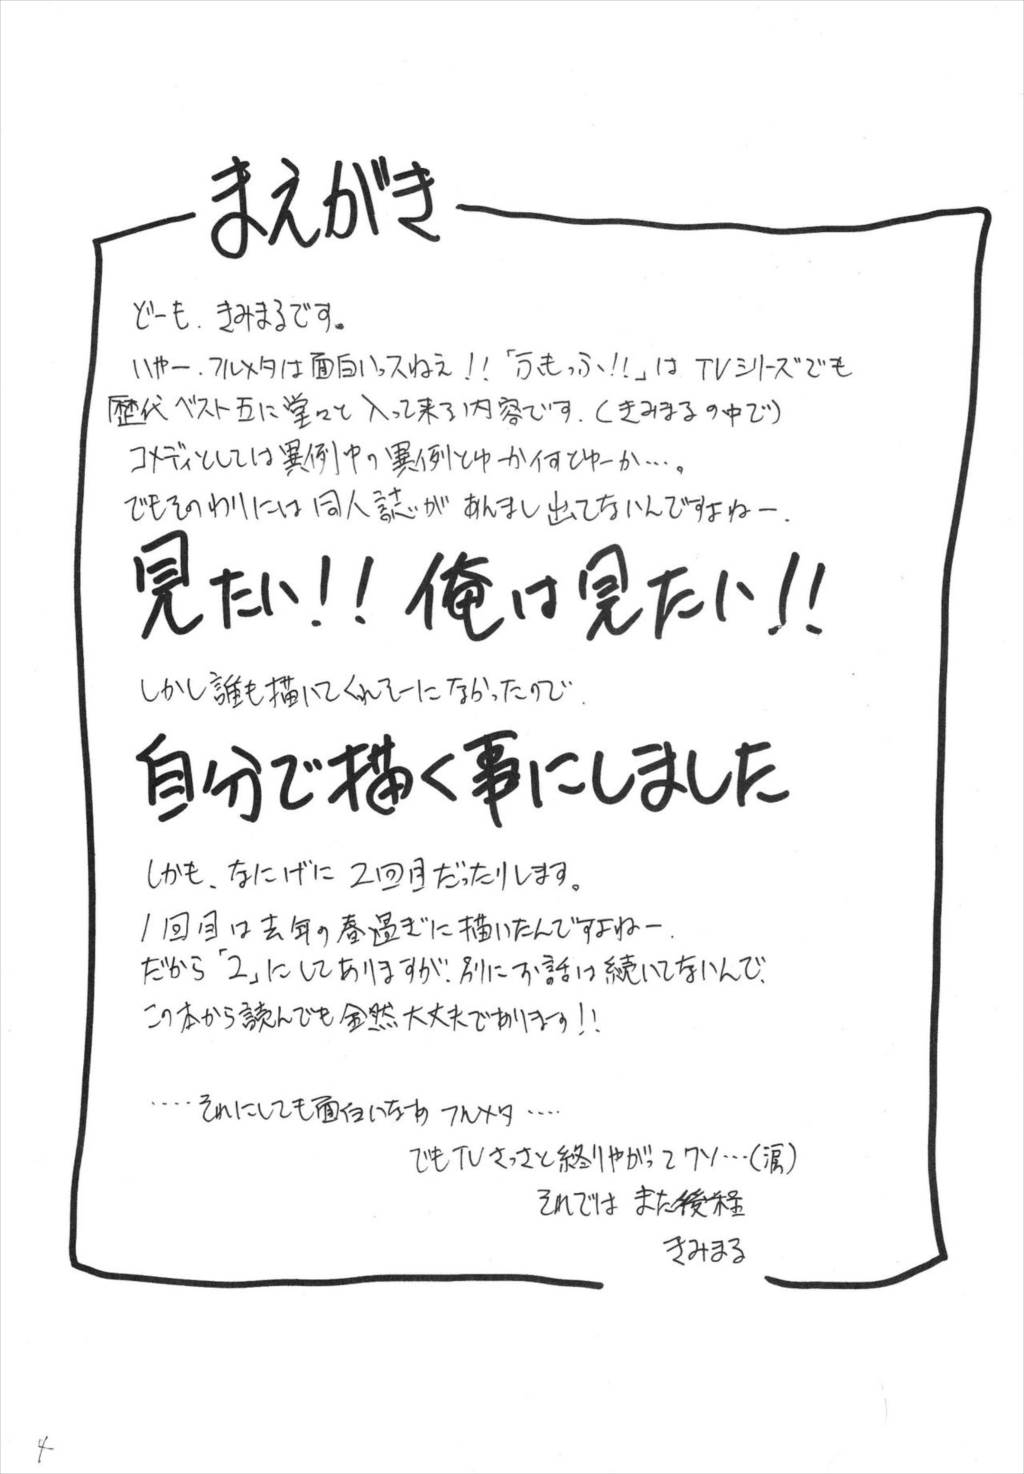 まえがき
どーも、きみまるです。
いやー、フルメタは面白いっスねえ!!「ふもっふ!!」は TVシリーズでも
歴代ベスト五に堂々と入って来る内容です。(きみまるの中で)
コメディとしては異例中の異例とゆーか何とゆーか…。
でもそのわりには同人誌があんまし出てないんですよねー。
見たい!!俺は見たい!!
しかし誰も描いてくれそーになかったので、
自分で描く事にしました
しかも、なにげに2回目だったりします。
1回目は去年の春過ぎに描いたんですよねー。
だから「2」にしてありますが、別にお話は続いてないんで、
この本から読んでも全然大丈夫であります!!
‥‥それにしても面白いなあ フルメタ‥‥
でもTVさっさと終りやがってクソ…(涙)
それでは また後程
きみまる
4